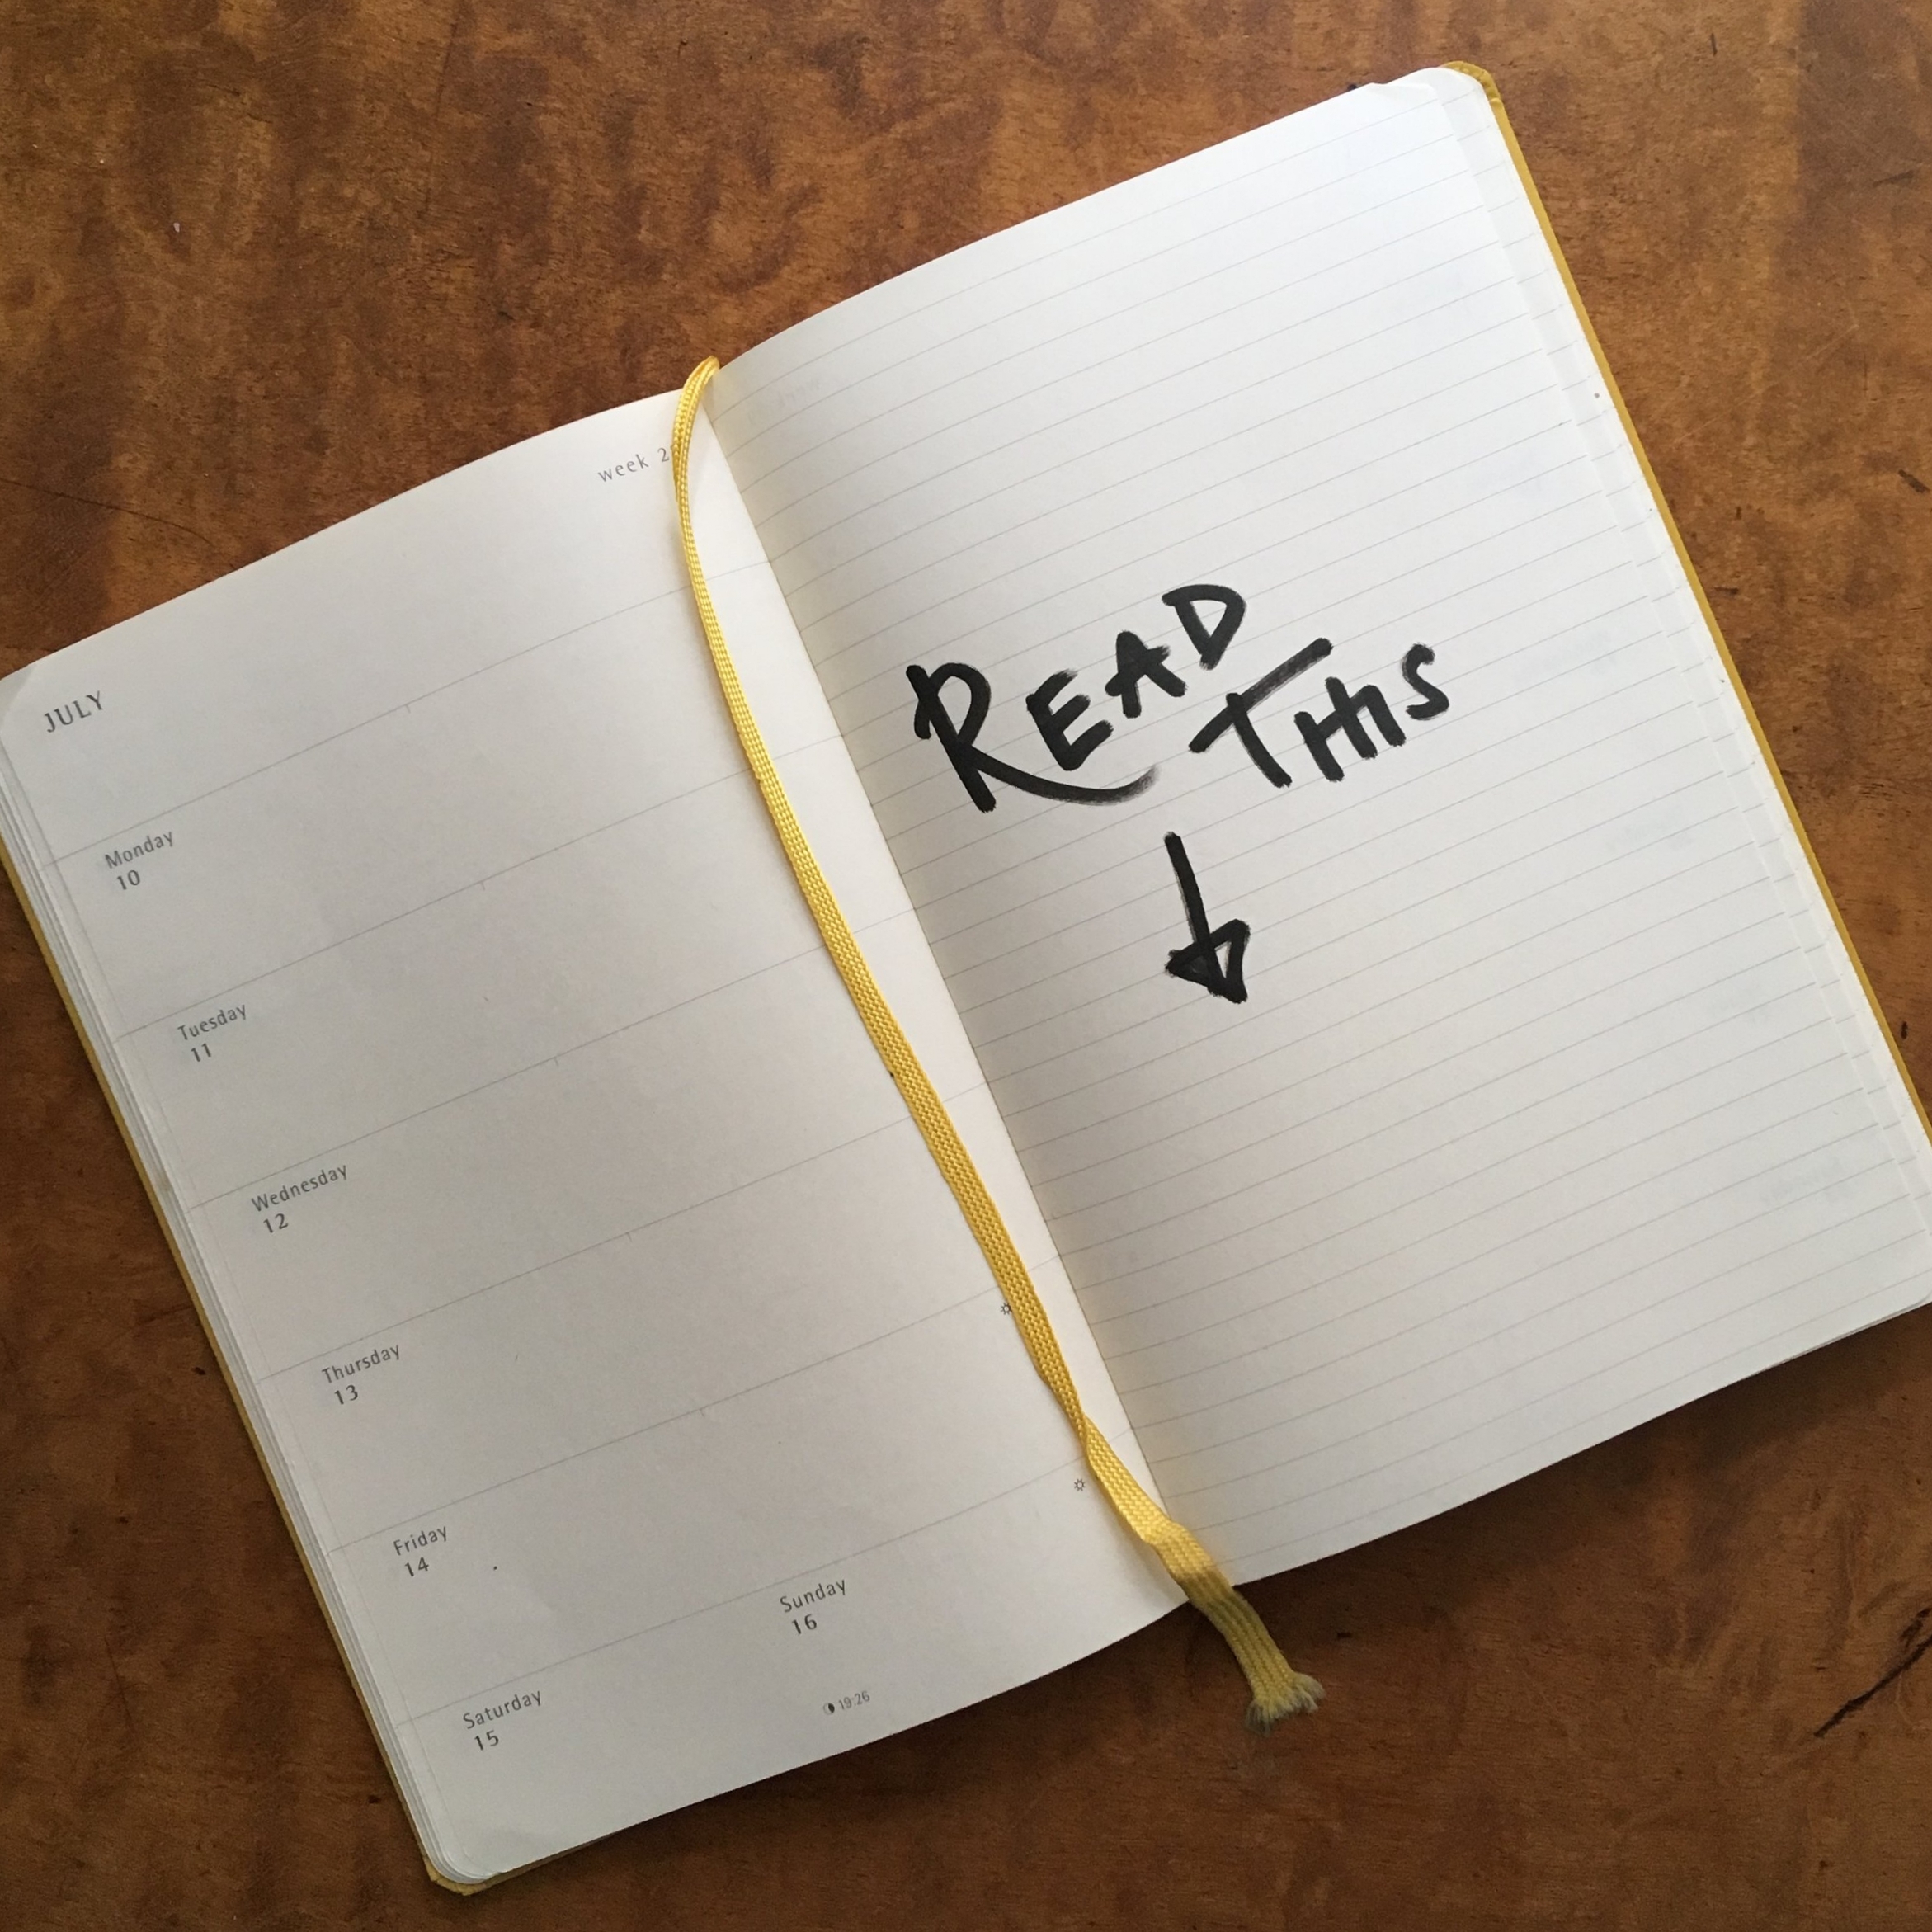 JULY
week
Monday
10
Tuesday
11
Wednesday
12
Thursday
13
Friday
14
Saturday
15
Sunday
16
19:26
READ
THIS